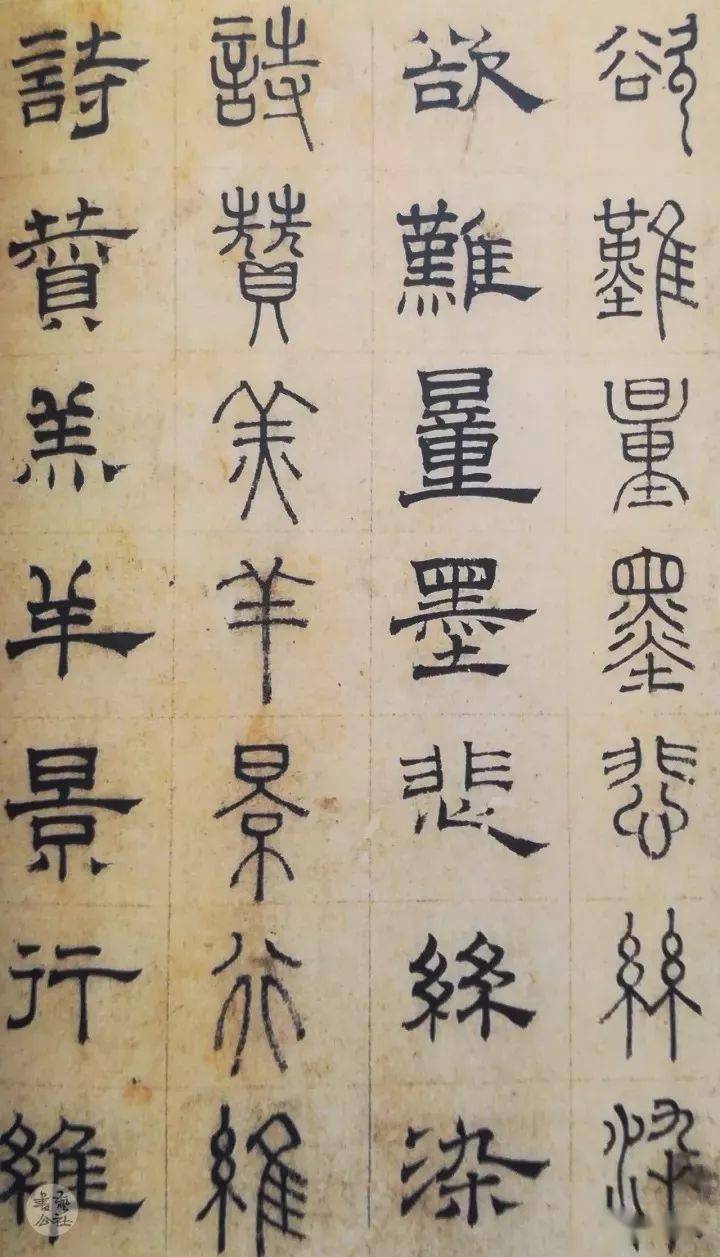 欲難量墨悲絲染
欲難量墨悲絲染
詩贊羔羊景行維
詩贊羔羊景行維
書藝公社